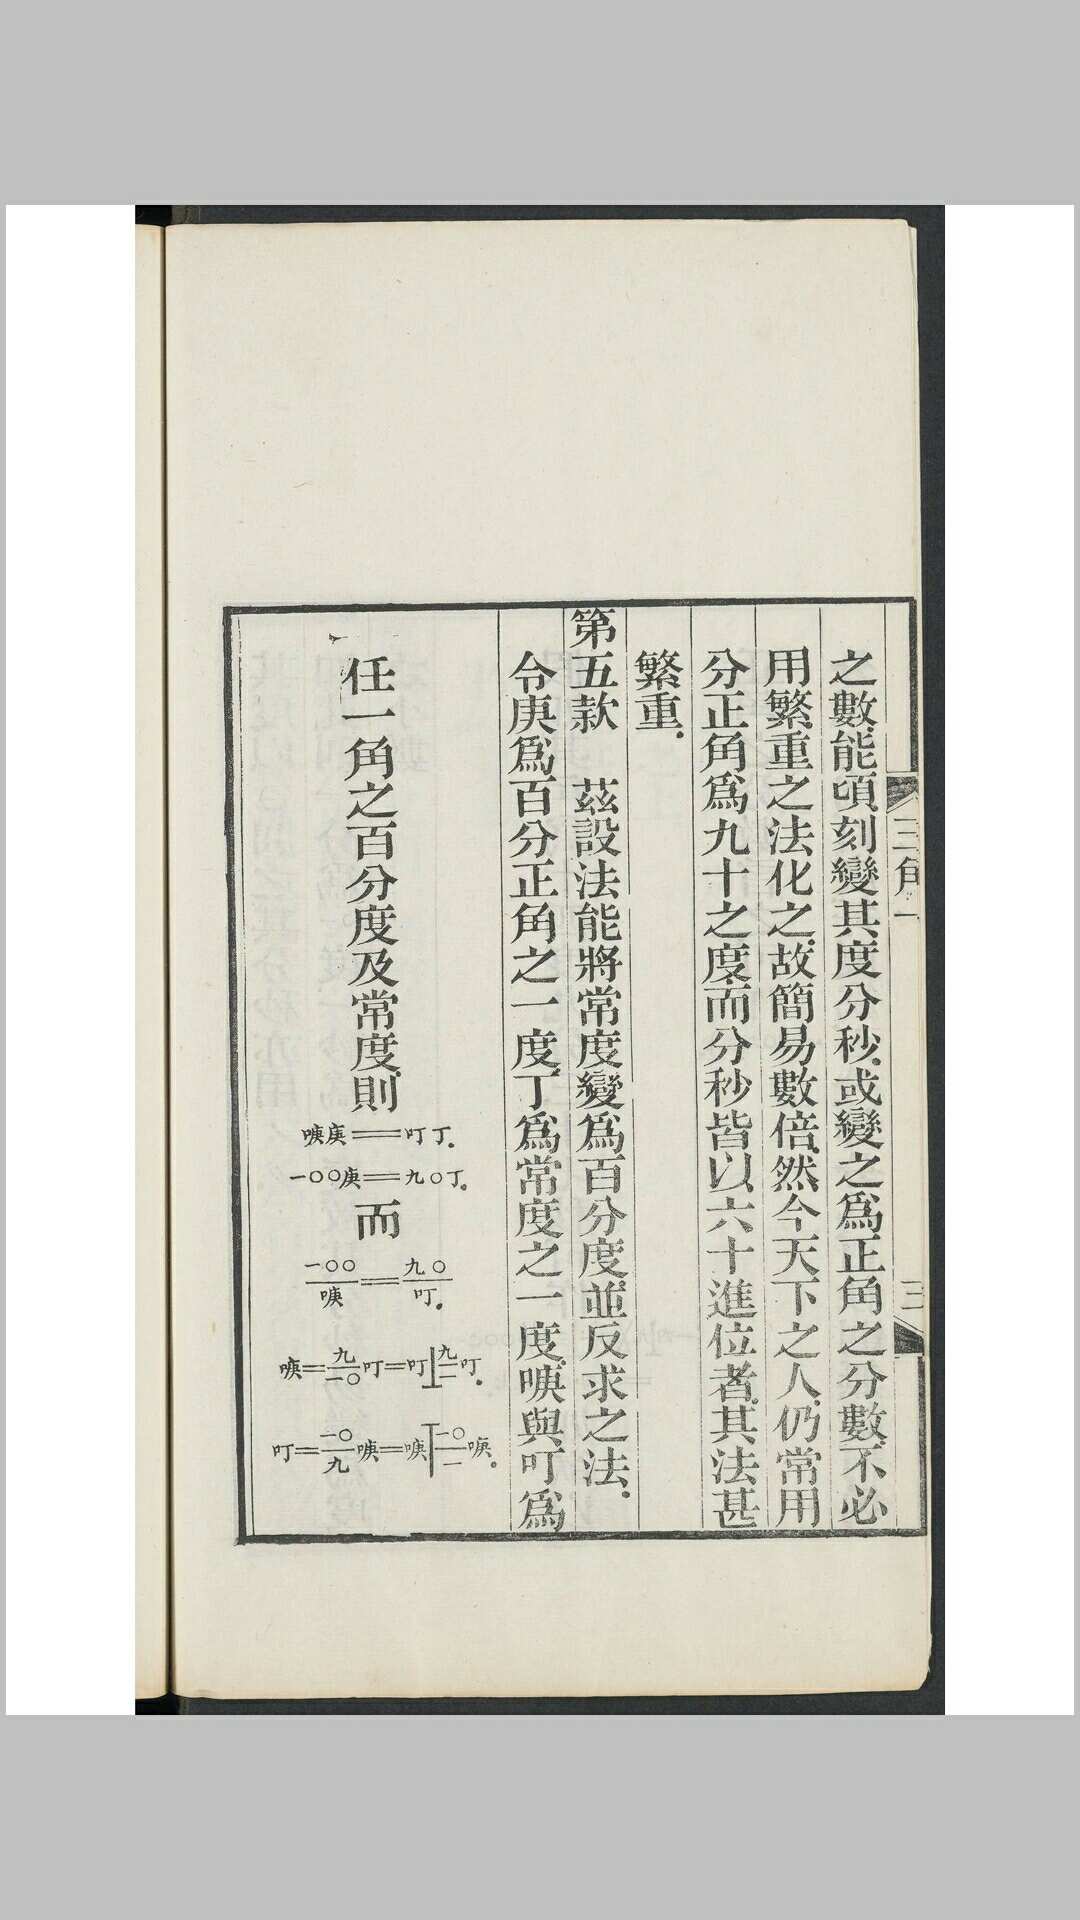 三角一
三
之數能頃刻變其度分秒或變之爲正角之分數不必
用繁重之法化之故簡易數倍然今天下之人仍常用
分正角爲九十之度而分秒皆以六十進位者其法甚
繁重
第五款　茲設法能將常度變爲百分度並反求之法
令庚爲百分正角之一度丁爲常度之一度㖅與叮爲
任一角之百分度及常度則
㖅庚＝叮丁。
一〇〇庚＝九〇丁。
而
一〇〇/㖅＝九〇/叮。
㖅＝九/一〇叮＝叮⊥九/一叮。
叮＝一〇/九㖅＝㖅丅一〇/一㖅。